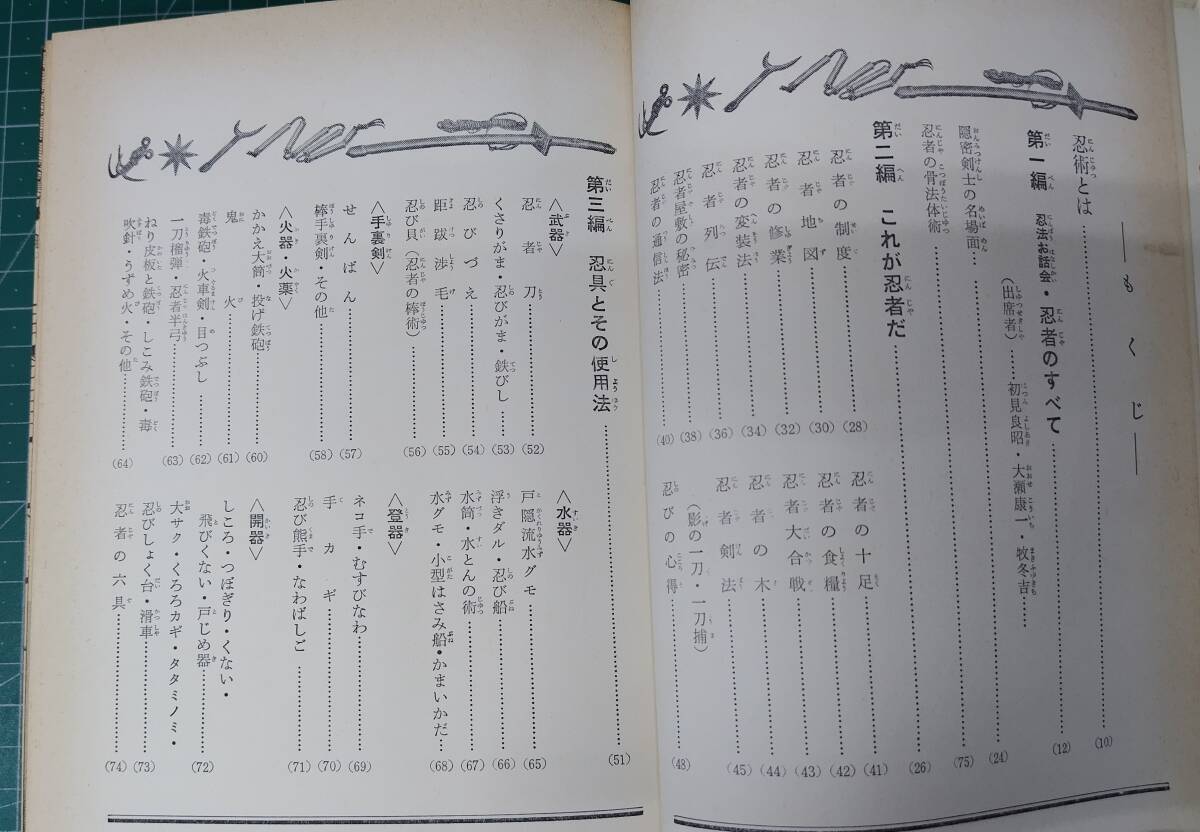 ―もくじ―
忍術とは……(10)
第一編 忍法お話会・忍者のすべて……(12)
(出席者)……初見良昭・大瀬康一・牧冬吉……(24)
隠密剣士の名場面……(75)
忍者の骨法体術……(26)
第二編 これが忍者だ
忍者の制度……(28)
忍者地図……(30)
忍者の修業……(32)
忍者の変装法……(34)
忍者列伝……(36)
忍者屋敷の秘密……(38)
忍者の通信法……(40)
忍者の十足……(41)
忍者の食糧……(42)
忍者大合戦……(43)
忍者の木……(44)
忍者剣法……(45)
(影の一刀・一刀捕)
忍びの心得……(48)
第三編 忍具とその使用法……(51)
<武器>
忍者刀……(52)
くさりがま・忍びがま・鉄びし……(53)
忍びづえ……(54)
距跋渉毛……(55)
忍び貝(忍者の棒術)……(56)
<手裏剣>
せんばん……(57)
棒手裏剣・その他……(58)
<火器・火薬>
かかえ大筒・投げ鉄砲……(60)
鬼火……(61)
毒鉄砲・火車剣・目つぶし……(62)
一刀榴弾・忍者半弓……(63)
ねり皮板と鉄砲・しこみ鉄砲・毒
吹針・うずめ火・その他……(64)
<水器>
戸隠流水グモ……(65)
浮きダル・忍び船……(66)
水筒・水とんの術……(67)
水グモ・小型はさみ船・かまいかだ…(68)
<登器>
ネコ手・むすびなわ……(69)
手カギ……(70)
忍び熊手・なわばしご……(71)
<開器>
しころ・つぼぎり・くない・
飛びくない・戸じめ器……(72)
大サク・くろろカギ・タタミノミ・
忍びしょく台・滑車……(73)
忍者の六具……(74)